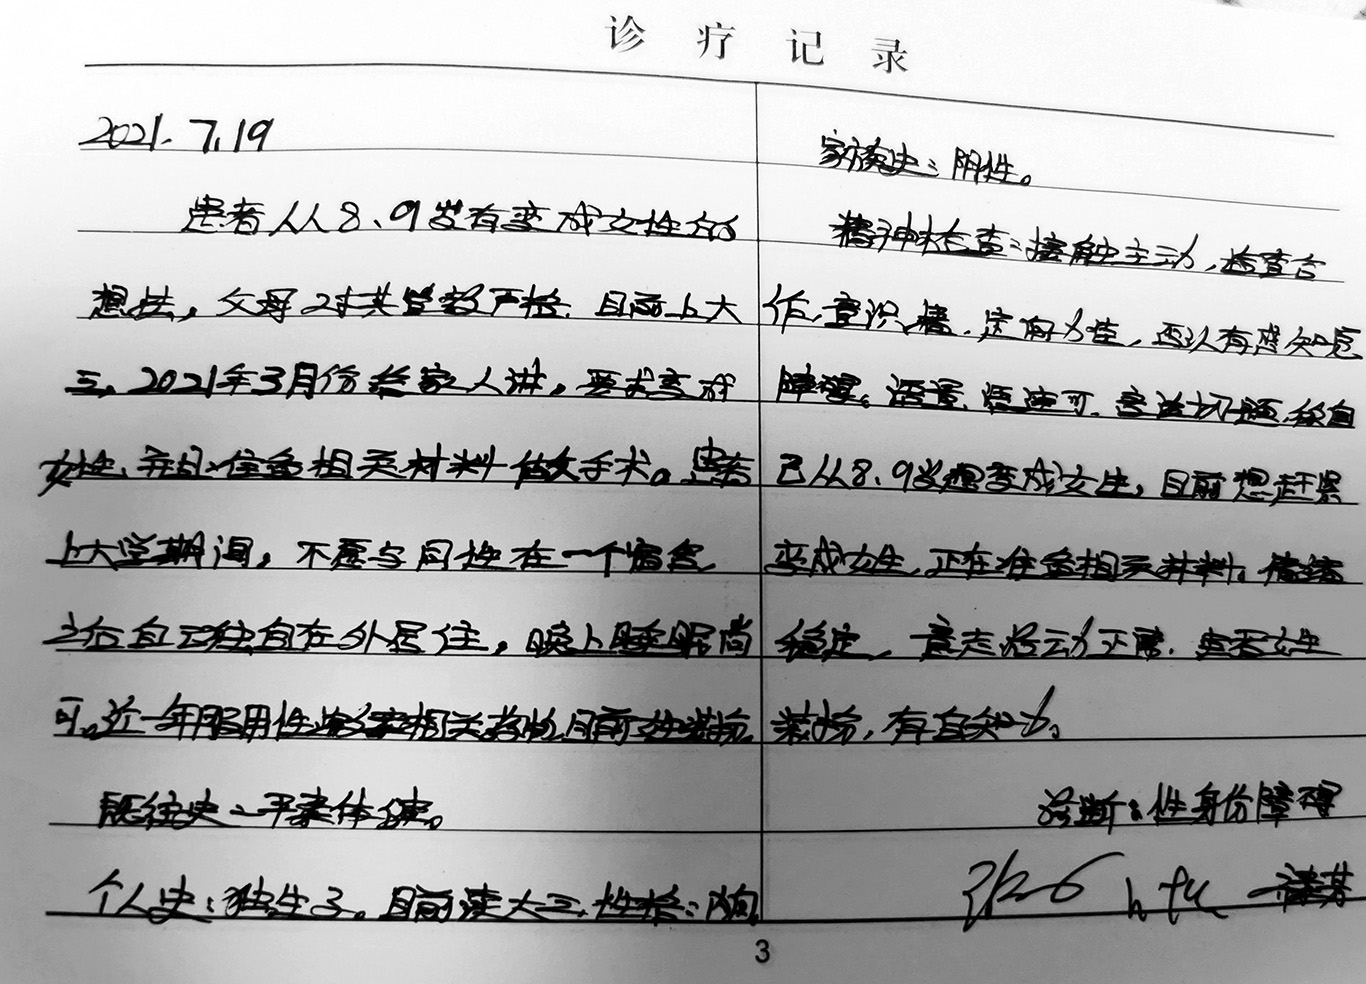 诊疗记录
2021.7.19
患者人从8、9岁有变成女性的
想法，父母对其管教严格，目前上大
三，2021年3月份给家人讲，要求变成
女性，并且准备相关材料做手术。患者
上大学期间，不愿与同性在一个宿舍，
之后自己独自在外居住，晚上睡眠尚
可。近一年服用性激素相关药物，目前女性装扮。
既往史：平素体健。
个人史：独生子。目前读大三，性格：内向
家族史：阴性。
精神检查：接触主动，检查合
作，意识清，定向力佳，否认有感知觉
障碍。语量、语速可，言谈切题，称自
己从8、9岁想变成女生，目前想赶紧
变成女生，正在准备相关材料。情绪
稳定，意志活动正常，女生
装扮，有自知力。
诊断：性身份障碍
3